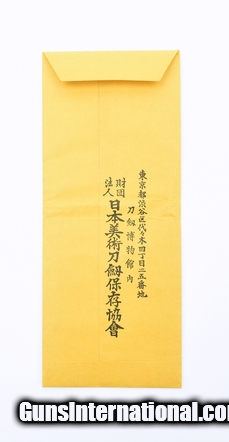 東京都渋谷区代々木四丁目二五番地
刀劔博物館内
財団法人
日本美術刀劔保存協會
GunsInternational.co